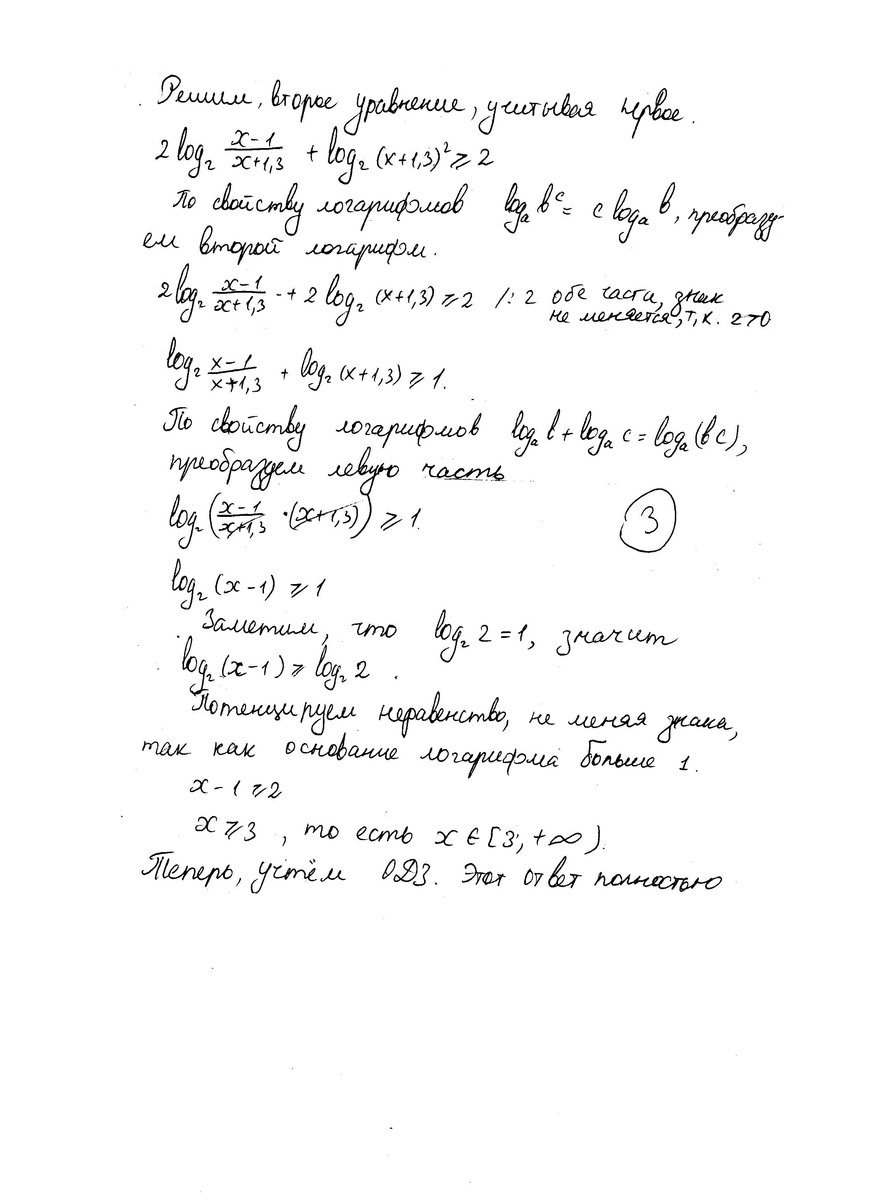 Решим, второе уравнение, учитывая первое.
2 log₂ (x-1)/(x+1,3) + log₂ (x+1,3)² ⩾ 2
По свойству логарифмов logₐ bᶜ = c logₐ b, преобразу-
ем второй логарифм.
2 log₂ (x-1)/(x+1,3) + 2 log₂ (x+1,3) ⩾ 2 /: 2 обе части, знак
не меняется, т.к. 2>0
log₂ (x-1)/(x+1,3) + log₂ (x+1,3) ⩾ 1.
По свойству логарифмов logₐ b + logₐ c = logₐ (bc),
преобразуем левую часть
log₂ ((x-1)/(x+1,3) · (x+1,3)) ⩾ 1
3
log₂ (x-1) ⩾ 1
Заметим, что log₂ 2 = 1, значит
log₂ (x-1) ⩾ log₂ 2 .
Потенцируем неравенство, не меняя знака,
так как основание логарифма больше 1.
x - 1 ⩾ 2
x ⩾ 3 , то есть x ∈ [3; +∞).
Теперь, учтём ОДЗ. Этот ответ полностью